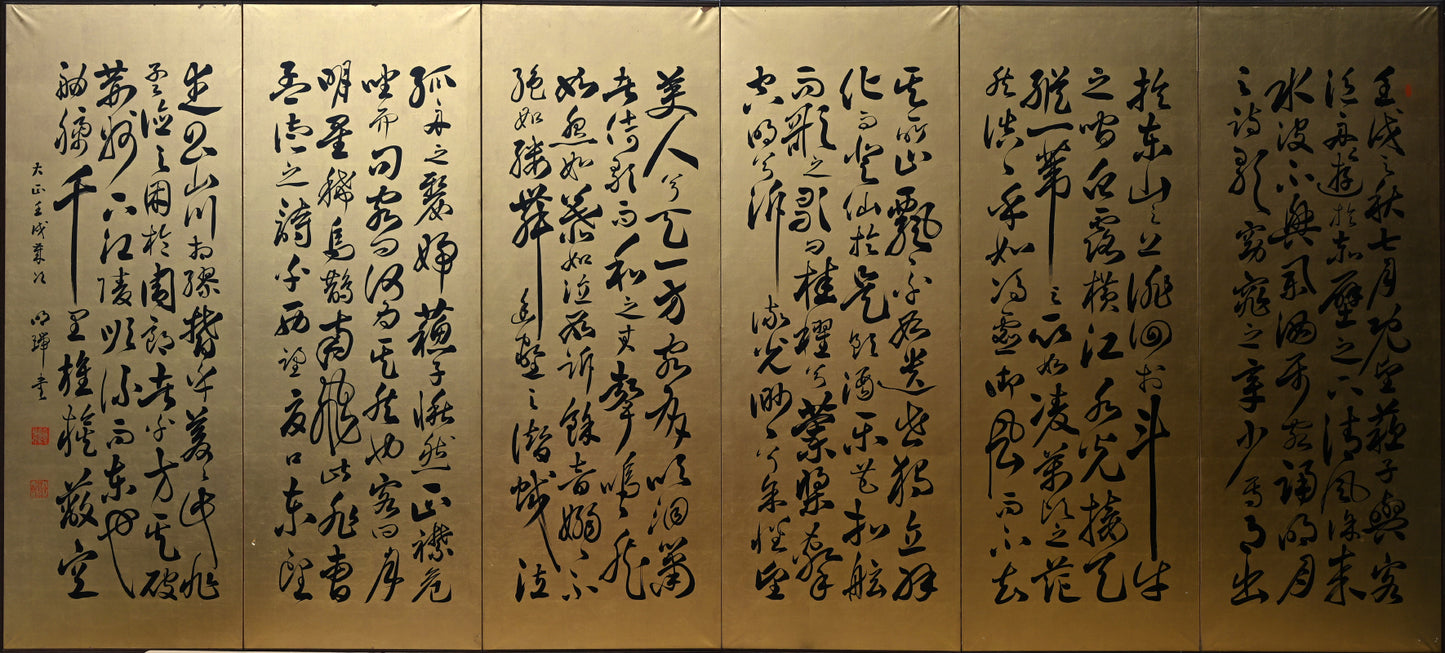 壬戌之秋七月既望蘇子與客
泛舟遊於赤壁之下清風徐來
水波不興舉酒屬客誦明月
之詩歌窈窕之章少焉月出
於東山之上徘徊於斗牛
之間白露橫江水光接天
縱一葦之所如凌萬頃之茫
然浩々乎如馮虛御風而不知
其所止飄々乎如遺世獨立羽
化而登仙於是飲酒樂甚扣舷
而歌之歌曰桂櫂兮蘭槳擊
空明兮泝流光渺々兮余懷望
美人兮天一方客有吹洞簫
者倚歌而和之其聲嗚々然
如怨如慕如泣如訴餘音嫋々不
絕如縷舞幽壑之潛蛟泣
孤舟之嫠婦蘇子愀然正襟危
坐而問客曰何為其然也客曰月
明星稀烏鵲南飛此非曹
孟德之詩乎西望夏口東望
武昌山川相繆鬱乎蒼々此非
孟德之困於周郎者乎方其破
荊州下江陵順流而東也
舳艫千里旌旗蔽空
大正壬戌
明輝書